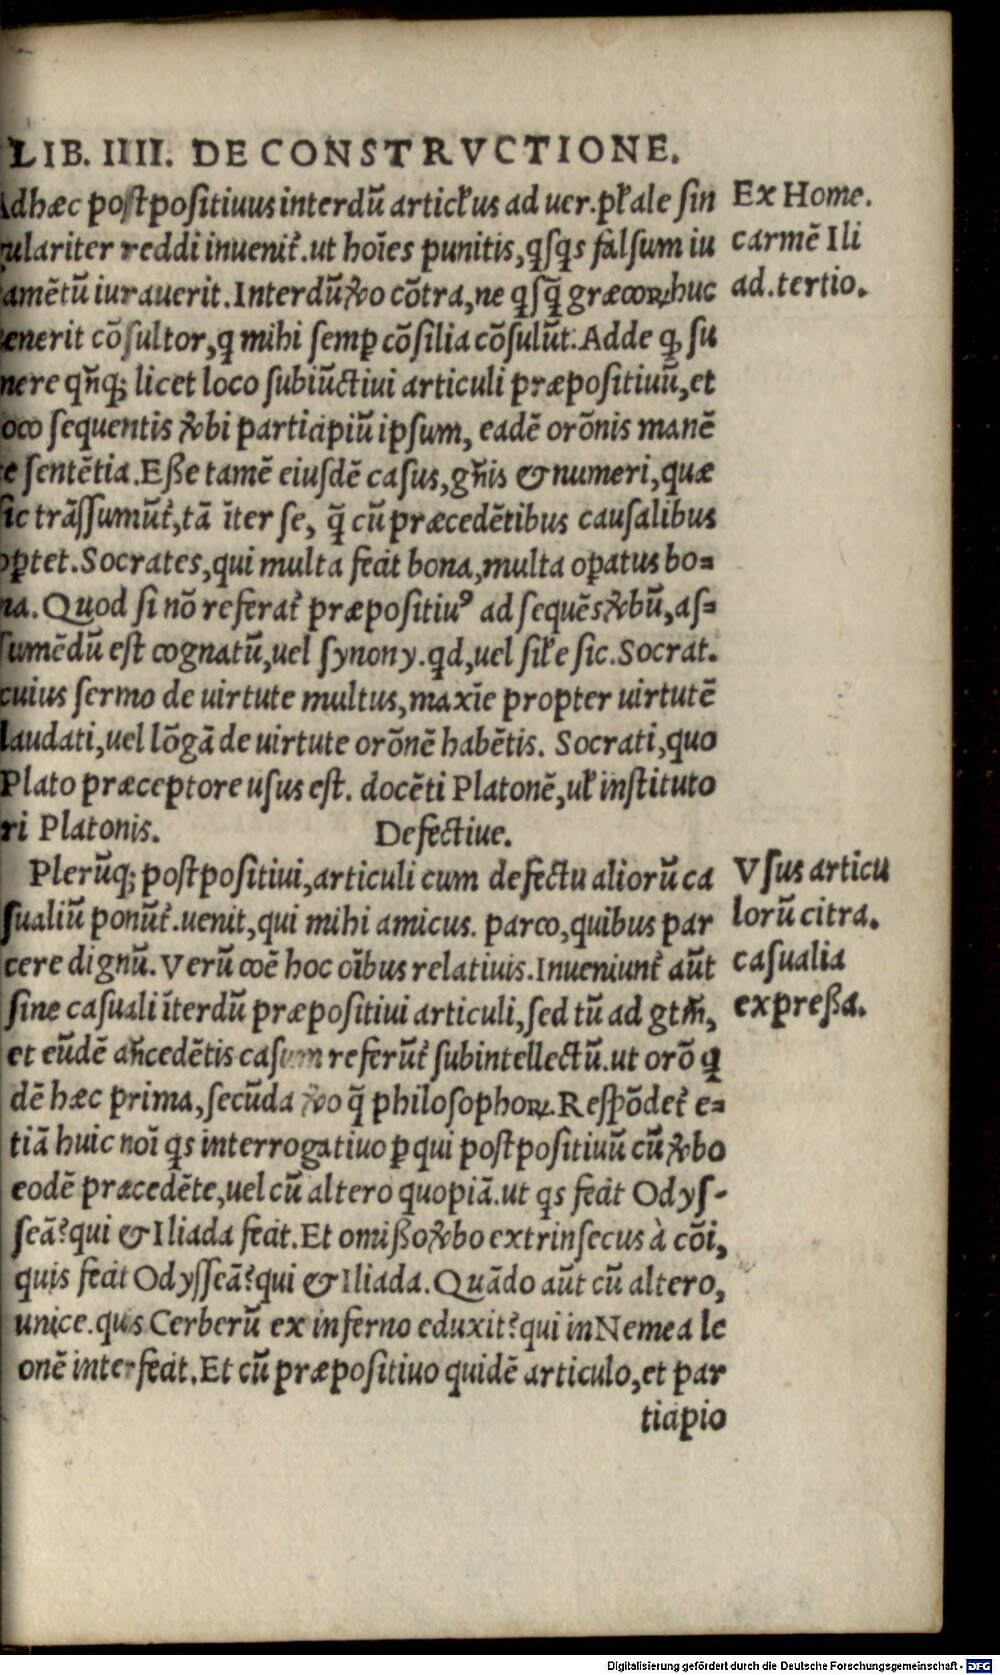 LIB. IIII. DE CONSTRVCTIONE.
Adhæc postpositiuus interdũ articƚus ad uer. pƚale sin
gulariter reddi inuenit̃. ut hoĩes punitis, qsqs falsum iu
ramẽtũ iurauerit. Interdũ ꝟo cõtra, ne qsq̃ græcoꝝ huc
uenerit cõsultor, q mihi semp̱ cõsilia cõsulũt. Adde ꝙ, su
mere qñq; licet loco subiũctiui articuli præpositiuũ, et
loco sequentis ꝟbi participiũ ipsum, eadẽ orõnis manẽ
te sentẽtia. Eße tamẽ eiusdẽ casus, gñis & numeri, quæ
sic trãssumũt̃, tã ĩter se, q̃ cũ præcedẽtibus causalibus
oꝑtet. Socrates, qui multa fecit bona, multa oꝑatus bo=
na. Quod si nõ referat̃ præpositiuꝰ ad sequẽs ꝟbũ, as=
sumẽdũ est cognatũ, uel synony. qd, uel siƚe sic. Socrat.
cuius sermo de uirtute multus, maxĩe propter uirtutẽ
laudati, uel lõgã de uirtute orõnẽ habẽtis. Socrati, quo
Plato præceptore usus est. docẽti Platonẽ, uƚ instituto
ri Platonis. Defectiue.
Plerũq; postpositiui, articuli cum defectu aliorũ ca
sualiũ ponũt̃. uenit, qui mihi amicus. parco, quibus par
cere dignũ. Verũ coẽ hoc oĩbus relatiuis. Inueniunt̃ aũt
sine casuali ĩterdũ præpositiui articuli, sed tũ ad gtm̃,
et eũdẽ añcedẽtis casum referũt̃ subintellectũ. ut orõ ꝗ
dẽ hæc prima, secũda ꝟo q̃ philosophoꝝ. Respõdet̃ e=
tiã huic noĩ qs interrogatiuo ꝑ qui postpositiuũ cũ ꝟbo
eodẽ præcedẽte, uel cũ altero quopiã. ut qs fecit Odys-
seã? qui & Iliada fecit. Et omißo ꝟbo extrinsecus à cõi,
quis fecit Odysseã? qui & Iliada. Quãdo aũt cũ altero,
unice. quis Cerberũ ex inferno eduxit? qui in Nemea le
onẽ interfecit. Et cũ præpositiuo quidẽ articulo, et par
ticipio
Ex Home.
carmẽ Ili
ad. tertio.
Vsus articu
lorũ citra.
casualia
expreßa.
Digitalisierung gefördert durch die Deutsche Forschungsgemeinschaft - DFG